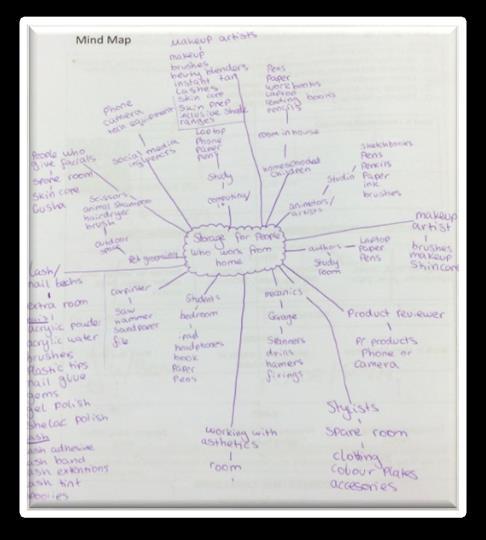 Mind Map
makeup artists
makeup
brushes
beuty blenders
instant tan
Lashes
Skin care
Skin prep
inclusive shade
ranges
Laptop
Phone
Paper
Pen
study
computing/
Pens
Paper
workbooks
Laptop
reading books
pencils
room in house
homeschooled
children
Phone
camera
tech equipment
social media
People who
give facials
spare room
skin care
Guasha
Scissors
animal shampoo
hairdryer
brush
outdoor
space
Pet grooming
sketchbooks
Pens
Pencils
Paper
ink
brushes
Studio
animators/
artists
Storage for People
who work from
home
authors
Study
room
Laptop
Paper
Pens
makeup
artist
brushes
makeup
Skincare
Lash/
nail techs
extra room
nails
acrylic powder
acrylic water
brushes
Plastic tips
nail glue
gems
gel polish
shelac polish
lash
ash adhesive
ash band
ash extentions
ash tint
carpinter
saw
hammer
sandpaper
file
Students
bedroom
ipad
headphones
book
Paper
Pens
mecanics
Garage
Spanners
drills
hamers
fixings
Product reviewer
Pr products
Phone or
camera
Stylists
Spare room
clothing
colour Plates
accesories
working with
asthetics
room